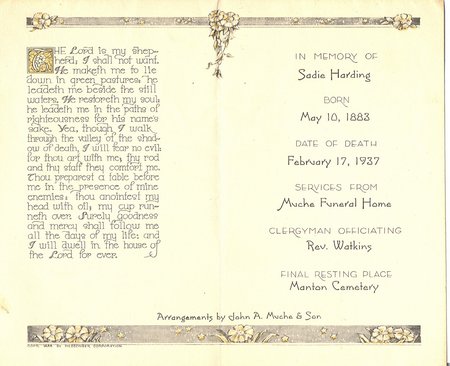 THE Lord is my shep-
herd; I shall not want.
He maketh me to lie
down in green pastures: he
leadeth me beside the still
waters. He restoreth my soul;
he leadeth me in the paths of
righteousness for his name's
sake. Yea, though I walk
through the valley of the shad-
ow of death, I will fear no evil:
for thou art with me; thy rod
and thy staff they comfort me.
Thou preparest a table before
me in the presence of mine
enemies: thou anointest my
head with oil; my cup run-
neth over. Surely goodness
and mercy shall follow me
all the days of my life: and
I will dwell in the house of
the Lord for ever.
IN MEMORY OF
Sadie Harding
BORN
May 10, 1883
DATE OF DEATH
February 17, 1937
SERVICES FROM
Muche Funeral Home
CLERGYMAN OFFICIATING
Rev. Watkins
FINAL RESTING PLACE
Manton Cemetery
Arrangements by John A. Muche & Son